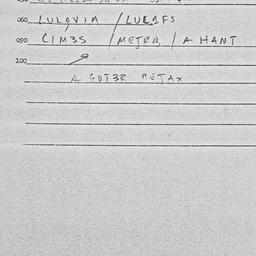 060 LULOVIA / LULAFS
090 CIM3S / METRA, / A HANT
100
A GUT3R RETAX